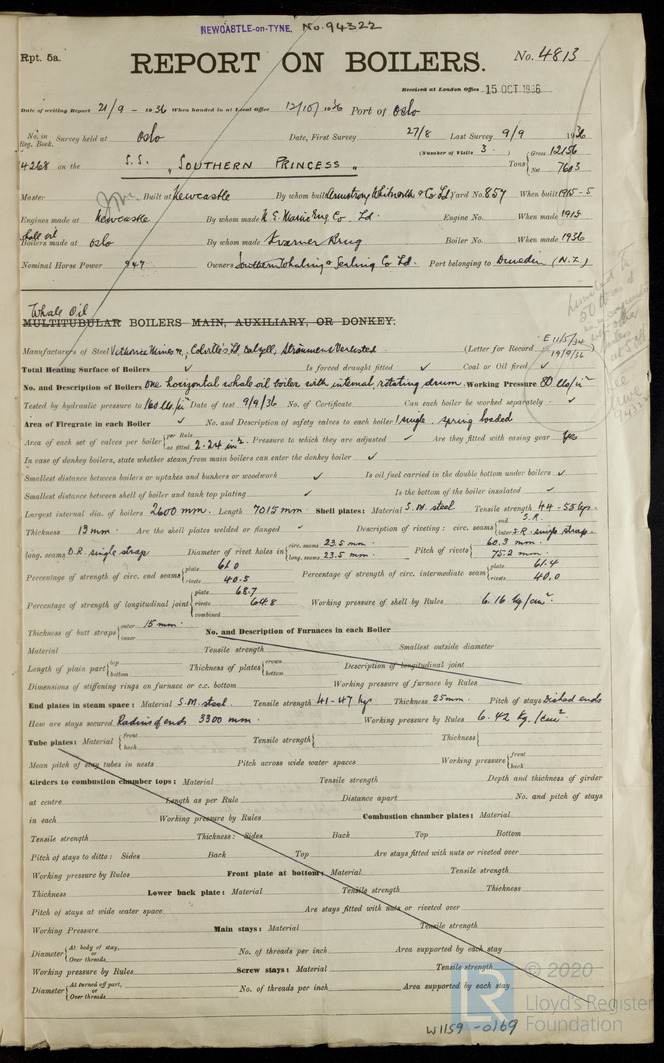 NEWCASTLE-on-TYNE. No. 94322
Rpt. 5a.
REPORT ON BOILERS. No. 4813
Received at London Office 15 OCT 1936
Date of writing Report 21/9 - 1936 When handed in at Local Office 12/10/1936 Port of Oslo
No. in Reg. Book. Survey held at Oslo Date, First Survey 27/8 Last Survey 9/9 1936
(Number of Visits 3.)
4268 on the S.S. "SOUTHERN PRINCESS" Tons { Gross 12156 Net 7603
Master Built at Newcastle By whom built Armstrong Whitworth & Co Ld Yard No. 857 When built 1915-5
Engines made at Newcastle By whom made N.E. Marine Eng. Co. Ld. Engine No. When made 1915
Whale oil
Boilers made at Oslo By whom made Kvaerner Brug Boiler No. When made 1936
Nominal Horse Power 947 Owners Southern Whaling & Sealing Co Ld. Port belonging to Dunedin (N.Z.)
Whale Oil
MULTITUBULAR BOILERS MAIN, AUXILIARY, OR DONKEY.
Manufacturers of Steel (Letter for Record E 11/5/34 19/9/36)
Total Heating Surface of Boilers ✓ Is forced draught fitted ✓ Coal or Oil fired ✓
No. and Description of Boilers One horizontal whale oil boiler with internal, rotating drum. Working Pressure 80 lbs/in²
Tested by hydraulic pressure to 160 lbs/in² Date of test 9/9/36 No. of Certificate Can each boiler be worked separately ✓
Area of Firegrate in each Boiler ✓ No. and Description of safety valves to each boiler 1 single, spring loaded
Area of each set of valves per boiler { per Rule as fitted 2.24 in². Pressure to which they are adjusted ✓ Are they fitted with easing gear Yes
In case of donkey boilers, state whether steam from main boilers can enter the donkey boiler ✓
Smallest distance between boilers or uptakes and bunkers or woodwork ✓ Is oil fuel carried in the double bottom under boilers ✓
Smallest distance between shell of boiler and tank top plating ✓ Is the bottom of the boiler insulated ✓
Largest internal dia. of boilers 2600 mm. Length 7015 mm. Shell plates: Material S.M. steel Tensile strength 44-55 kgs.
Thickness 13 mm. Are the shell plates welded or flanged ✓ Description of riveting: circ. seams { end S.R. inter S.R. single strap.
long. seams D.R. single strap Diameter of rivet holes in { circ. seams 23.5 mm. long. seams 23.5 mm. Pitch of rivets { 60.3 mm. 75.2 mm.
Percentage of strength of circ. end seams { plate 61.0 rivets 40.5 Percentage of strength of circ. intermediate seam { plate 61.4 rivets 40.0
Percentage of strength of longitudinal joint { plate 68.7 rivets 64.8 combined Working pressure of shell by Rules 6.16 kg/cm².
Thickness of butt straps { outer 15 mm. inner No. and Description of Furnaces in each Boiler
Material Tensile strength Smallest outside diameter
Length of plain part { top bottom Thickness of plates { crown bottom Description of longitudinal joint
Dimensions of stiffening rings on furnace or c.c. bottom Working pressure of furnace by Rules
End plates in steam space: Material S.M. steel Tensile strength 41-47 kgs Thickness 25 mm. Pitch of stays Dished ends
How are stays secured Radius of ends 3300 mm. Working pressure by Rules 6.42 kg./cm²
Tube plates: Material { front back Tensile strength { Thickness {
Mean pitch of stay tubes in nests Pitch across wide water spaces Working pressure { front back
Girders to combustion chamber tops: Material Tensile strength Depth and thickness of girder
at centre Length as per Rule Distance apart No. and pitch of stays
in each Working pressure by Rules Combustion chamber plates: Material
Tensile strength Thickness: Sides Back Top Bottom
Pitch of stays to ditto: Sides Back Top Are stays fitted with nuts or riveted over
Working pressure by Rules Front plate at bottom: Material Tensile strength
Thickness Lower back plate: Material Tensile strength Thickness
Pitch of stays at wide water space Are stays fitted with nuts or riveted over
Working Pressure Main stays: Material Tensile strength
Diameter { At body of stay, or Over threads No. of threads per inch Area supported by each stay
Working pressure by Rules Screw stays: Material Tensile strength
Diameter { At turned off part, or Over threads No. of threads per inch Area supported by each stay
© 2020
LR Lloyd's Register
Foundation
W1159-0169